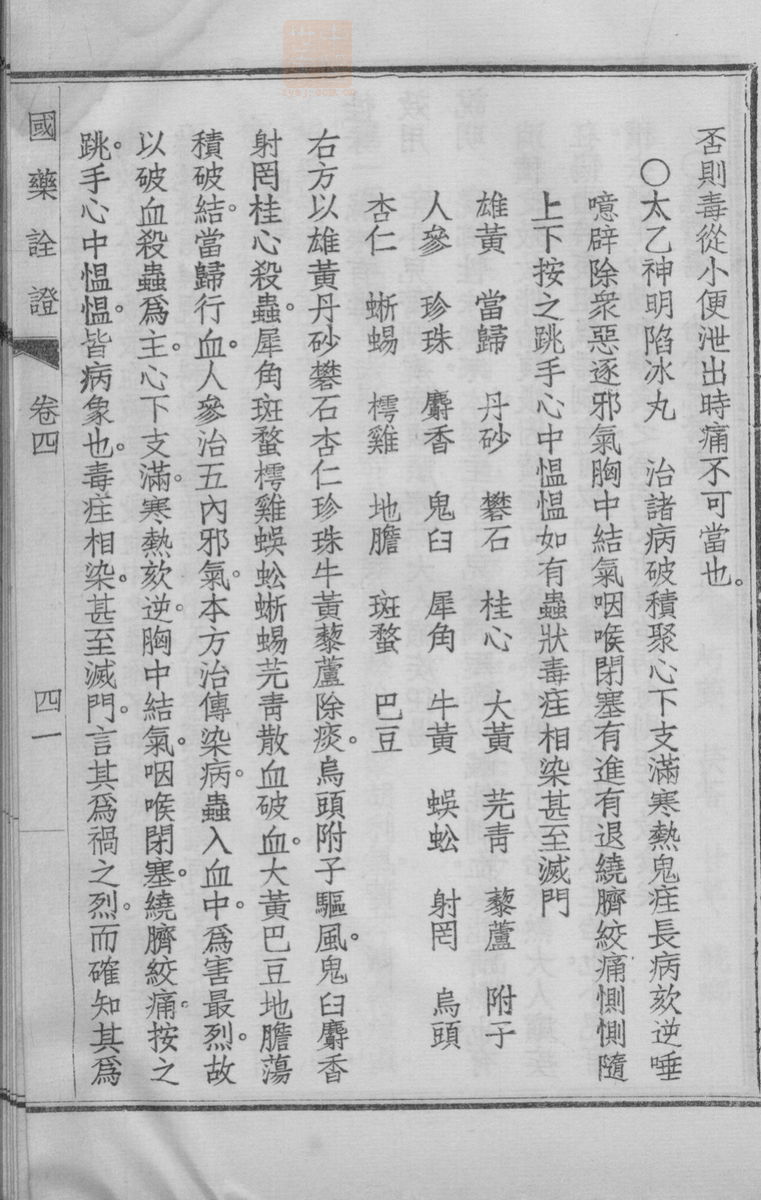 否則毒從小便泄出時痛不可當也。
〇太乙神明陷冰丸　治諸病破積聚心下支滿寒熱鬼疰長病欬逆唾
噫辟除衆惡逐邪氣胸中結氣咽喉閉塞有進有退繞臍絞痛惻惻隨
上下按之跳手心中愠愠如有蟲狀毒疰相染甚至滅門
雄黃　當歸　丹砂　礬石　桂心　大黃　芫靑　藜蘆　附子
人參　珍珠　麝香　鬼臼　犀角　牛黃　蜈蚣　射罔　烏頭
杏仁　蜥蜴　樗雞　地膽　斑蝥　巴豆
右方以雄黃丹砂礬石杏仁珍珠牛黃藜蘆除痰。烏頭附子驅風。鬼臼麝香
射罔桂心殺蟲。犀角斑蝥樗雞蜈蚣蜥蜴芫靑散血破血。大黃巴豆地膽蕩
積破結。當歸行血。人參治五內邪氣。本方治傳染病。蟲入血中。爲害最烈。故
以破血殺蟲爲主。心下支滿。寒熱欬逆。胸中結氣。咽喉閉塞。繞臍絞痛。按之
跳手。心中愠愠。皆病象也。毒疰相染。甚至滅門。言其爲禍之烈。而確知其爲
國藥詮證
卷四
四一